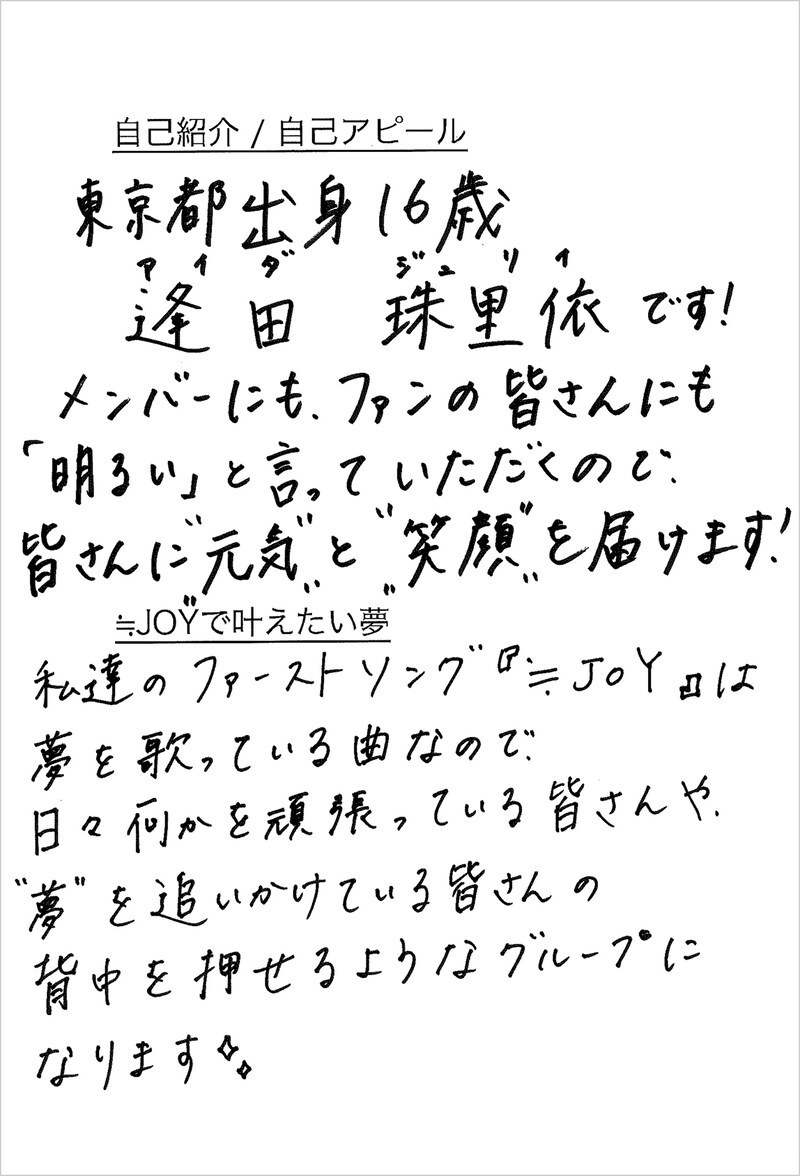 自己紹介 / 自己アピール
東京都出身16歳
アイダ ジュリイ
逢田 珠里依 です!
メンバーにも、ファンの皆さんにも
「明るい」と言っていただくので、
皆さんに"元気"と"笑顔"を届けます!
≒JOYで叶えたい夢
私達のファーストソング『≒JOY』は
夢を歌っている曲なので、
日々何かを頑張っている皆さんや、
"夢"を追いかけている皆さんの
背中を押せるようなグループに
なります